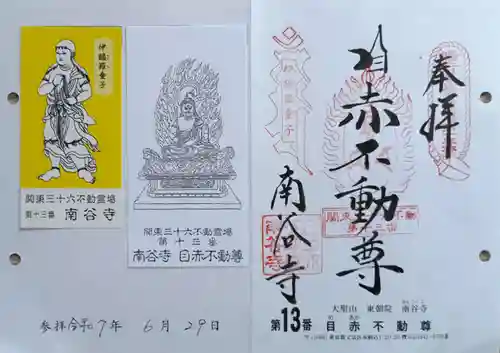 伊醯羅童子
関東三十六不動霊場
第十三番 南谷寺
関東三十六不動霊場
第十三番
南谷寺 目赤不動尊
参拝令和7年 6月29日
奉拝
目赤不動尊
南谷寺
関東三十六不動
第十三番
大聖山 東朝院 南谷寺
第13番 目赤不動尊